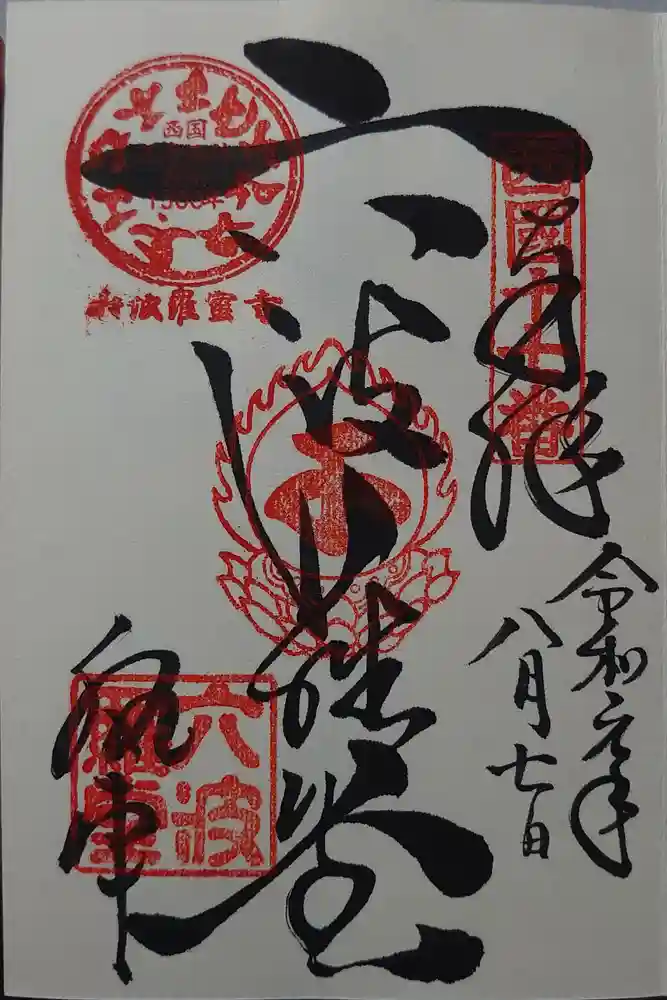 奉拝
西國十七番
令和元年
八月七日
六波羅堂
西国
1300年
六波羅蜜寺
六波
羅堂